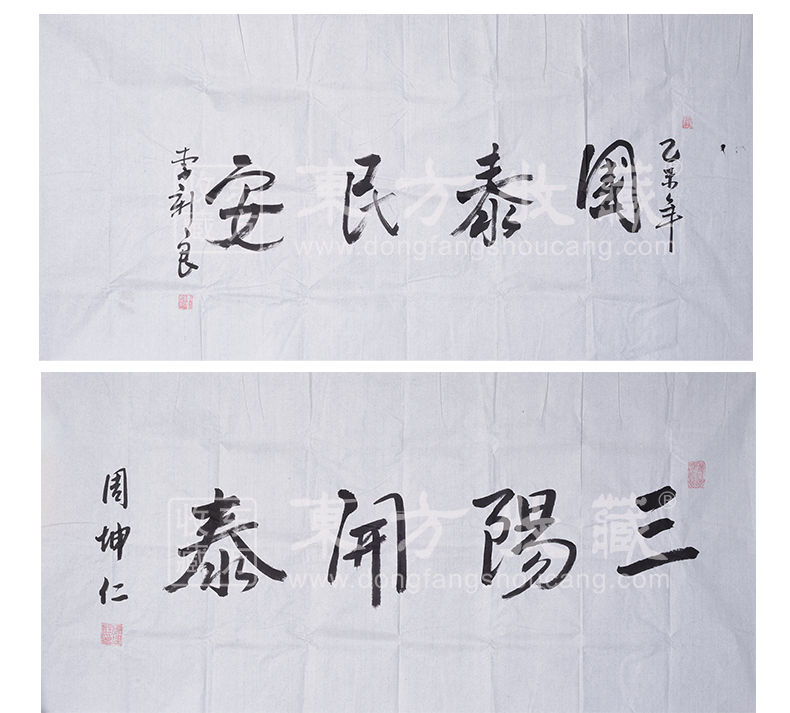 乙未年
國泰民安
李新良
收藏
東方收藏®
www.dongfangshoucang.com
三陽開泰
周坤仁
收藏
東方收藏®
www.dongfangshoucang.com